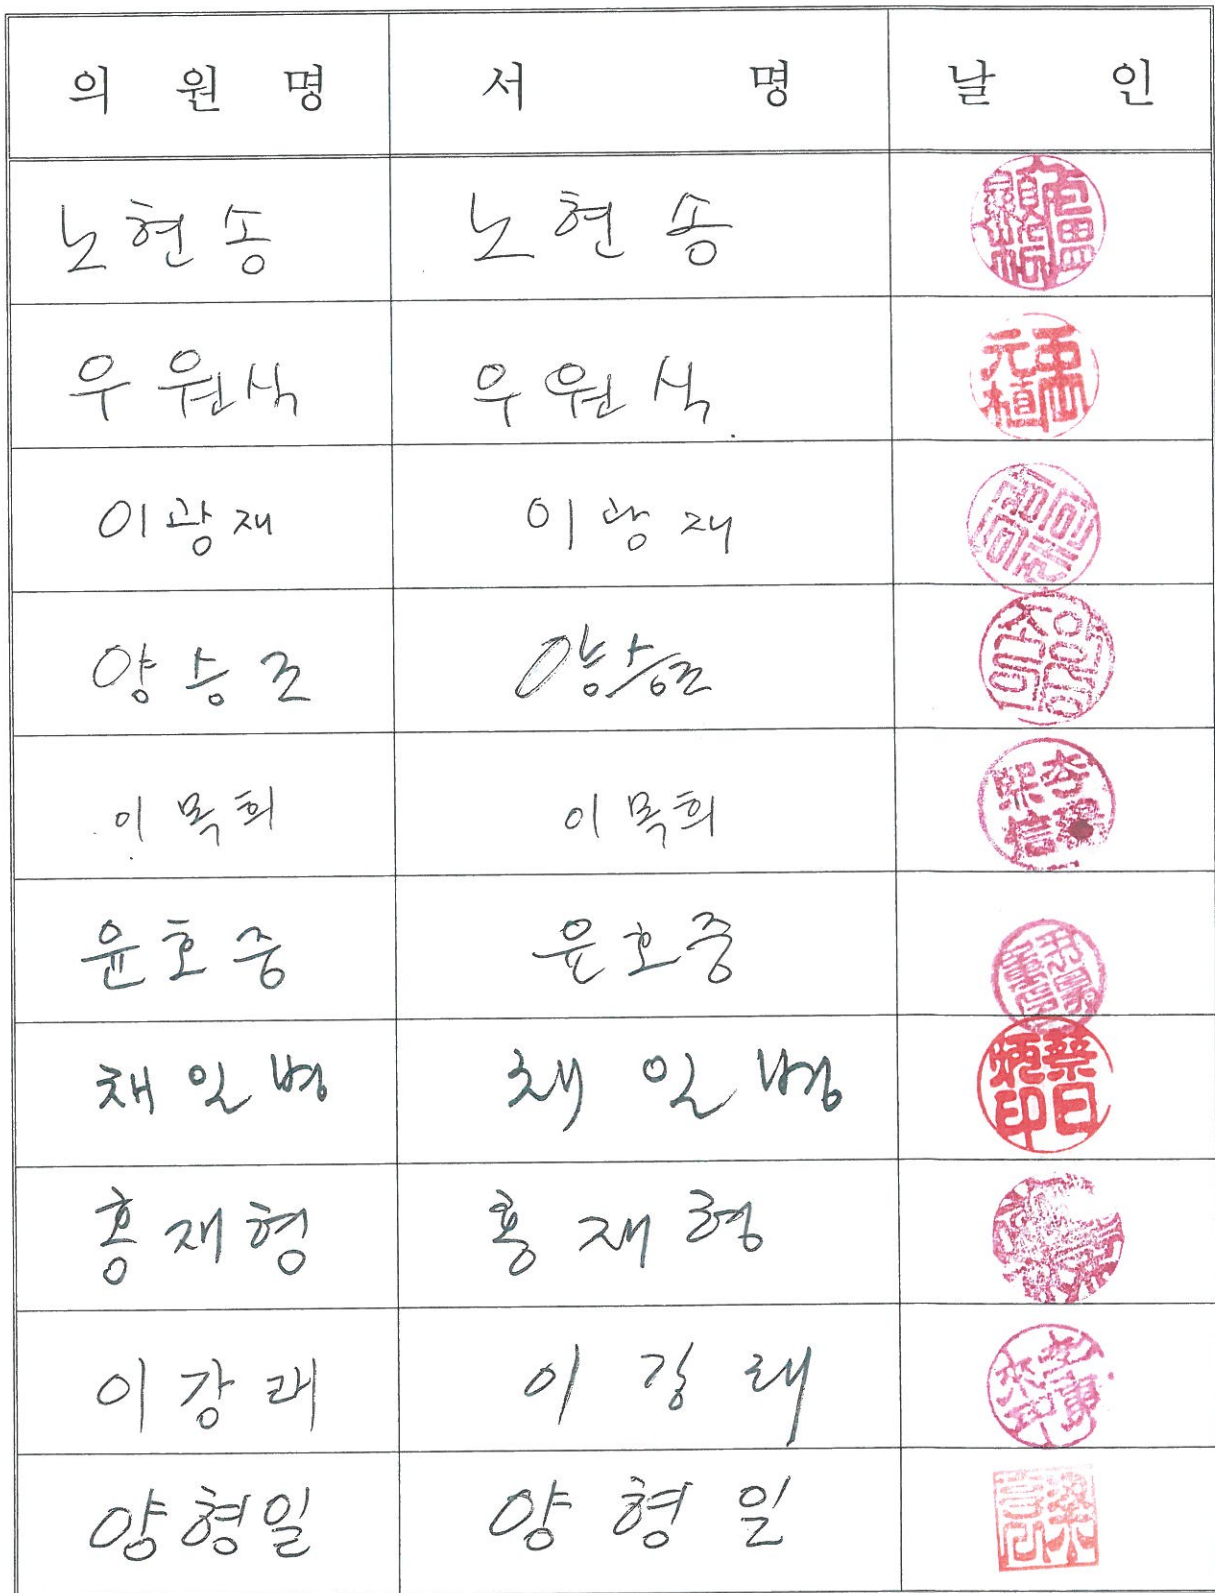 의 원 명 서 명 날 인
노현송 노현송
우원식 우원식 元植
이광재 이광재
양승조 양승조
이목희 이목희
윤호중 윤호중
채일병 채일병 蔡日炳印
홍재형 홍재형
이강래 이강래
양형일 양형일